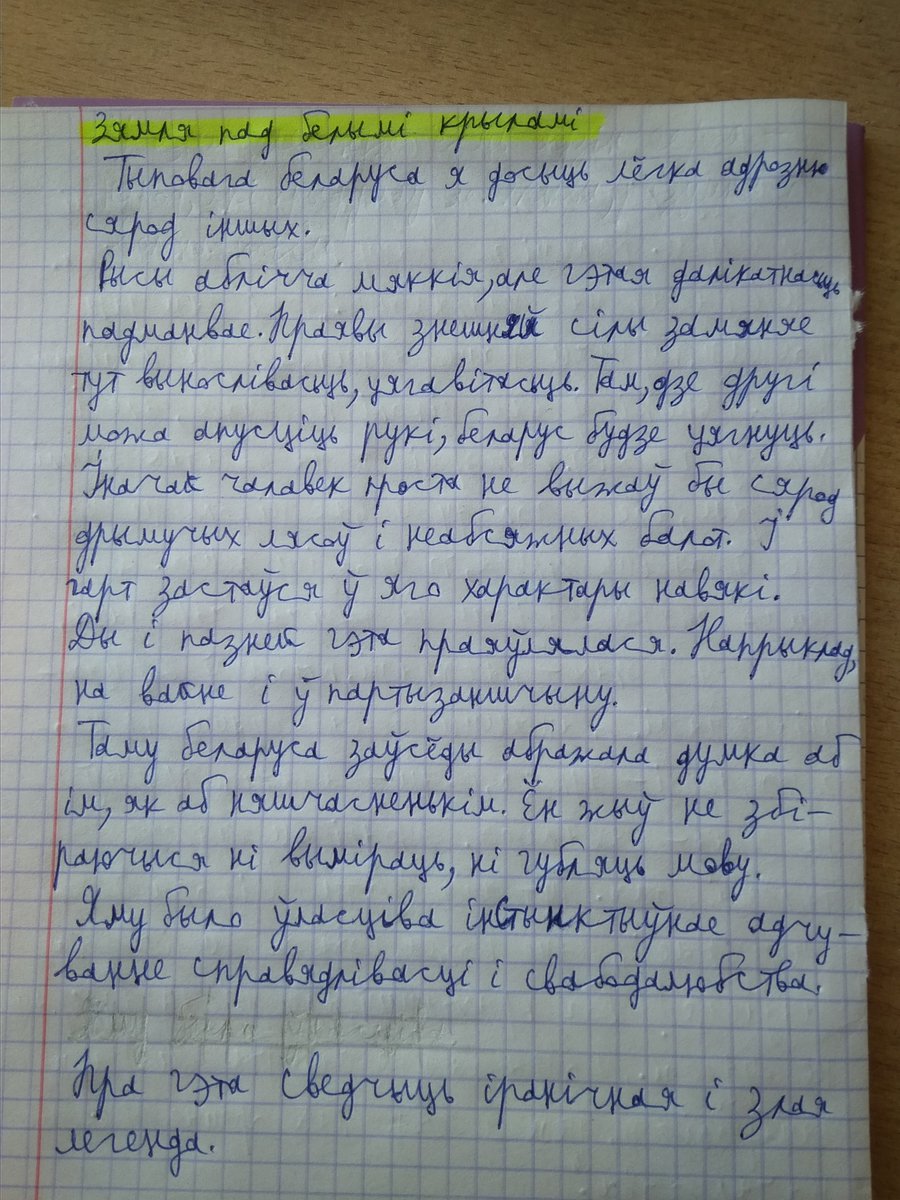 Зямля пад белымі крыламі
Тыповага беларуса я досыць лёгка адрозню
сярод іншых.
Рысы аблічча мяккія, але гэтая далікатнасць
падманвае. Праявы знешняй сілы замяняе
тут вынослівасць, цягавітасць. Там, дзе другі
можа апусціць рукі, беларус будзе цягнуць.
Іначай чалавек проста не выжаў бы сярод
дрымучых лясоў і неабсяжных балот. І
гарт застаўся ў яго характары навякі.
Ды і пазней гэта праяўлялася. Напрыклад,
на вайне і ў партызаншчыну.
Таму беларуса заўсёды абражала думка аб
ім, як аб няшчасненькім. Ён жыў не збі-
раючыся ні выміраць, ні губляць мову.
Яму было ўласціва інстынктыўнае адчу-
ванне справядлівасці і свабодалюбства.
Пра гэта сведчыць іранічная і злая
легенда.